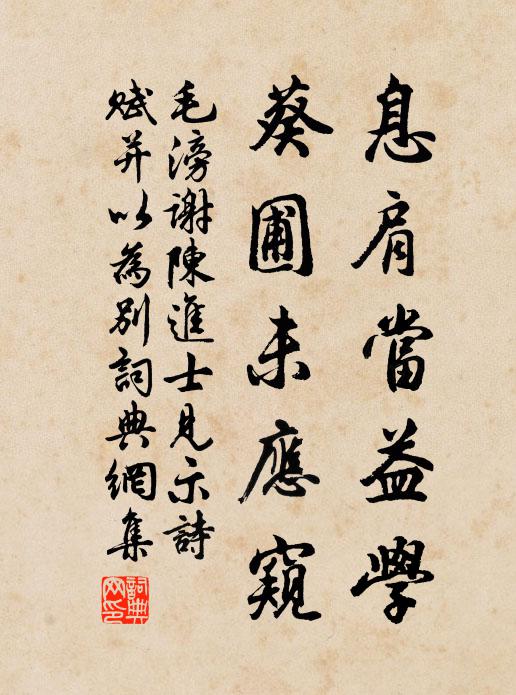 息肩當益學
葵圃未應窺
毛滂謝陳進士見示詩
賦并以為別詞典網集
詞典網印